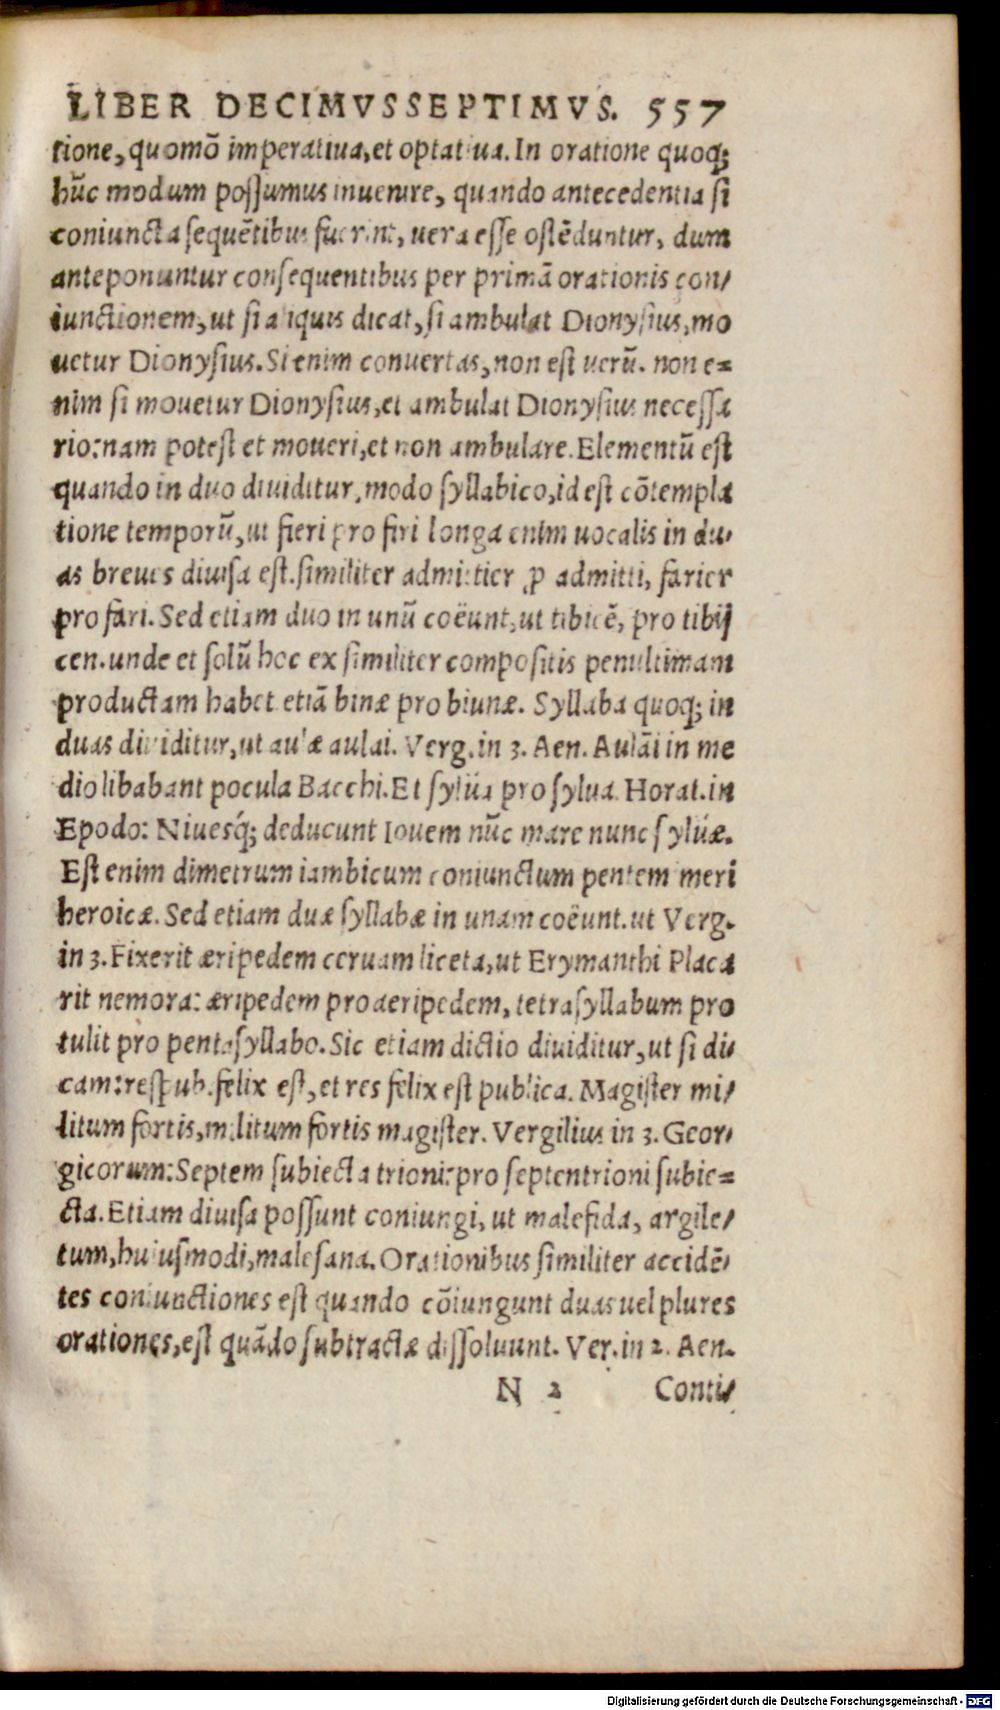 LIBER DECIMVSSEPTIMVS. 557
tione, quomō imperatiua, et optatiua. In oratione quoq;
hūc modum possumus inuenire, quando antecedentia si
coniuncta sequētibus fuerint, uera esse ostēduntur, dum
anteponuntur consequentibus per primā orationis con/
iunctionem, ut si aliquis dicat, si ambulat Dionysius, mo
uetur Dionysius. Si enim conuertas, non est uerū. non e=
nim si mouetur Dionysius, et ambulat Dionysius necessa
rio: nam potest et moueri, et non ambulare. Elementū est
quando in duo diuiditur, modo syllabico, id est cōtempla
tione temporū, ut fieri pro firi longa enim uocalis in du/
as breues diuisa est. similiter admittier ꝓ admitti, farier
pro fari. Sed etiam duo in unū coëunt, ut tibicē, pro tibij
cen. unde et solū hoc ex similiter compositis penultimam
productam habet etiā binæ pro biunæ. Syllaba quoq; in
duas diuiditur, ut aulæ aulai. Verg. in 3. Aen. Aulāi in me
dio libabant pocula Bacchi. Et sylüa pro sylua. Horat. in
Epodo: Niuesq́; deducunt Iouem nūc mare nunc sylüæ.
Est enim dimetrum iambicum coniunctum pentemimeri
heroicæ. Sed etiam duæ syllabæ in unam coëunt. ut Verg.
in 3. Fixerit æripedem ceruam liceta, ut Erymanthi Placa
rit nemora: æripedem pro aeripedem, tetrasyllabum pro
tulit pro pentasyllabo. Sic etiam dictio diuiditur, ut si di/
cam: respub. felix est, et res felix est publica. Magister mi/
litum fortis, militum fortis magister. Vergilius in 3. Geor/
gicorum: Septem subiecta trioni: pro septentrioni subie=
cta. Etiam diuisa possunt coniungi, ut malefida, argile/
tum, huiusmodi, malesana. Orationibus similiter accidē/
tes coniunctiones est quando cōiungunt duas uel plures
orationes, est quādo subtractæ dissoluunt. Ver. in 2. Aen.
N 2 Conti/
Digitalisierung gefördert durch die Deutsche Forschungsgemeinschaft - DFG